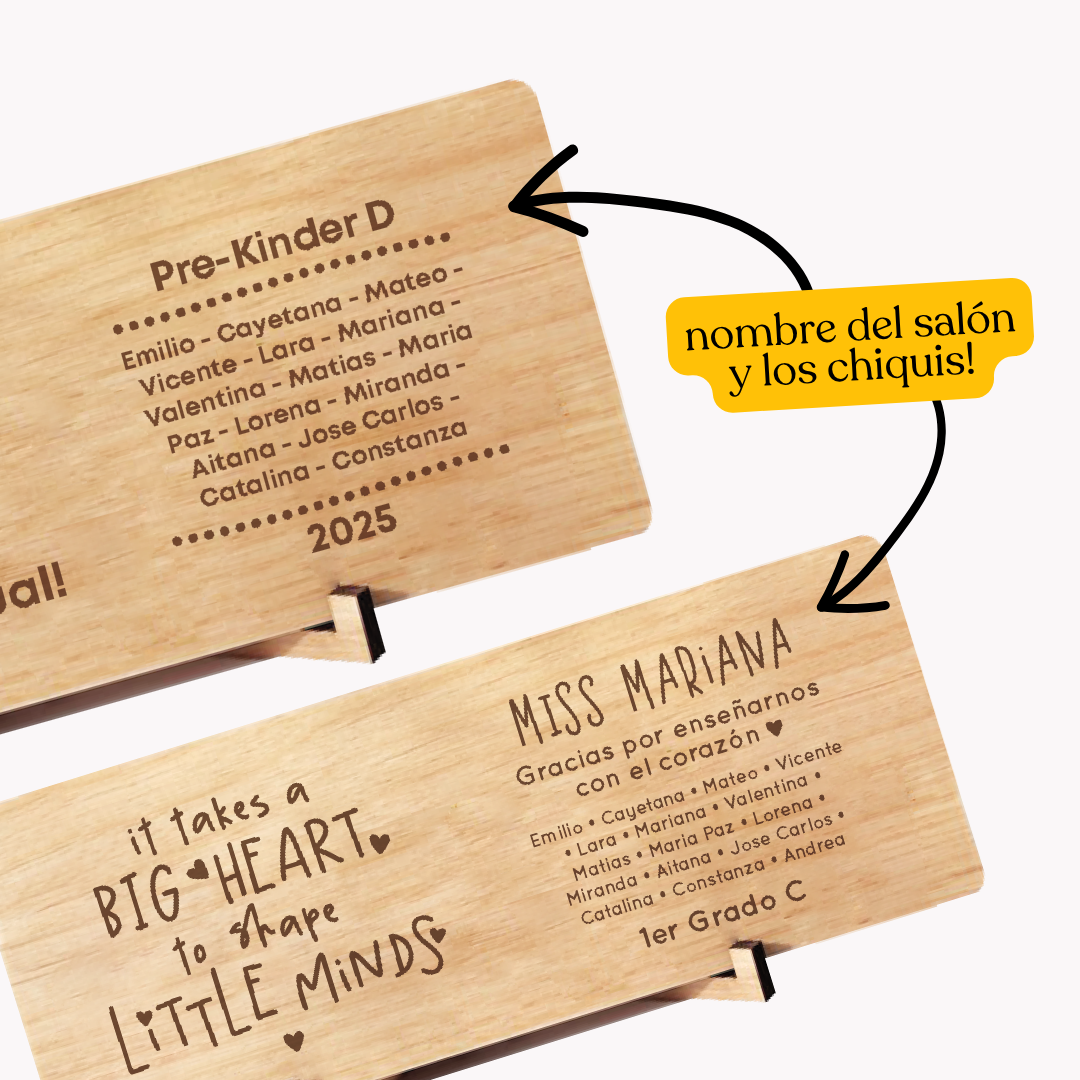 Pre-Kinder D
Emilio - Cayetana - Mateo -
Vicente - Lara - Mariana -
Valentina - Matias - Maria
Paz - Lorena - Miranda -
Aitana - Jose Carlos -
Catalina - Constanza
2025
ual!
nombre del salón
y los chiquis!
it takes a
BIG HEART
to shape
LiTTLE MiNDS
MISS MARiANA
Gracias por enseñarnos
con el corazón
Emilio • Cayetana • Mateo • Vicente
• Lara • Mariana • Valentina •
Matias • Maria Paz • Lorena •
Miranda • Aitana • Jose Carlos •
Catalina • Constanza • Andrea
1er Grado C